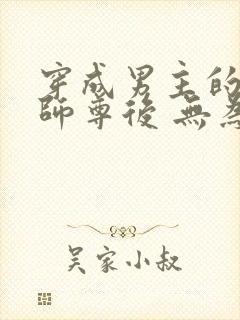 穿成男主的
師尊後 無為
吴家小叔